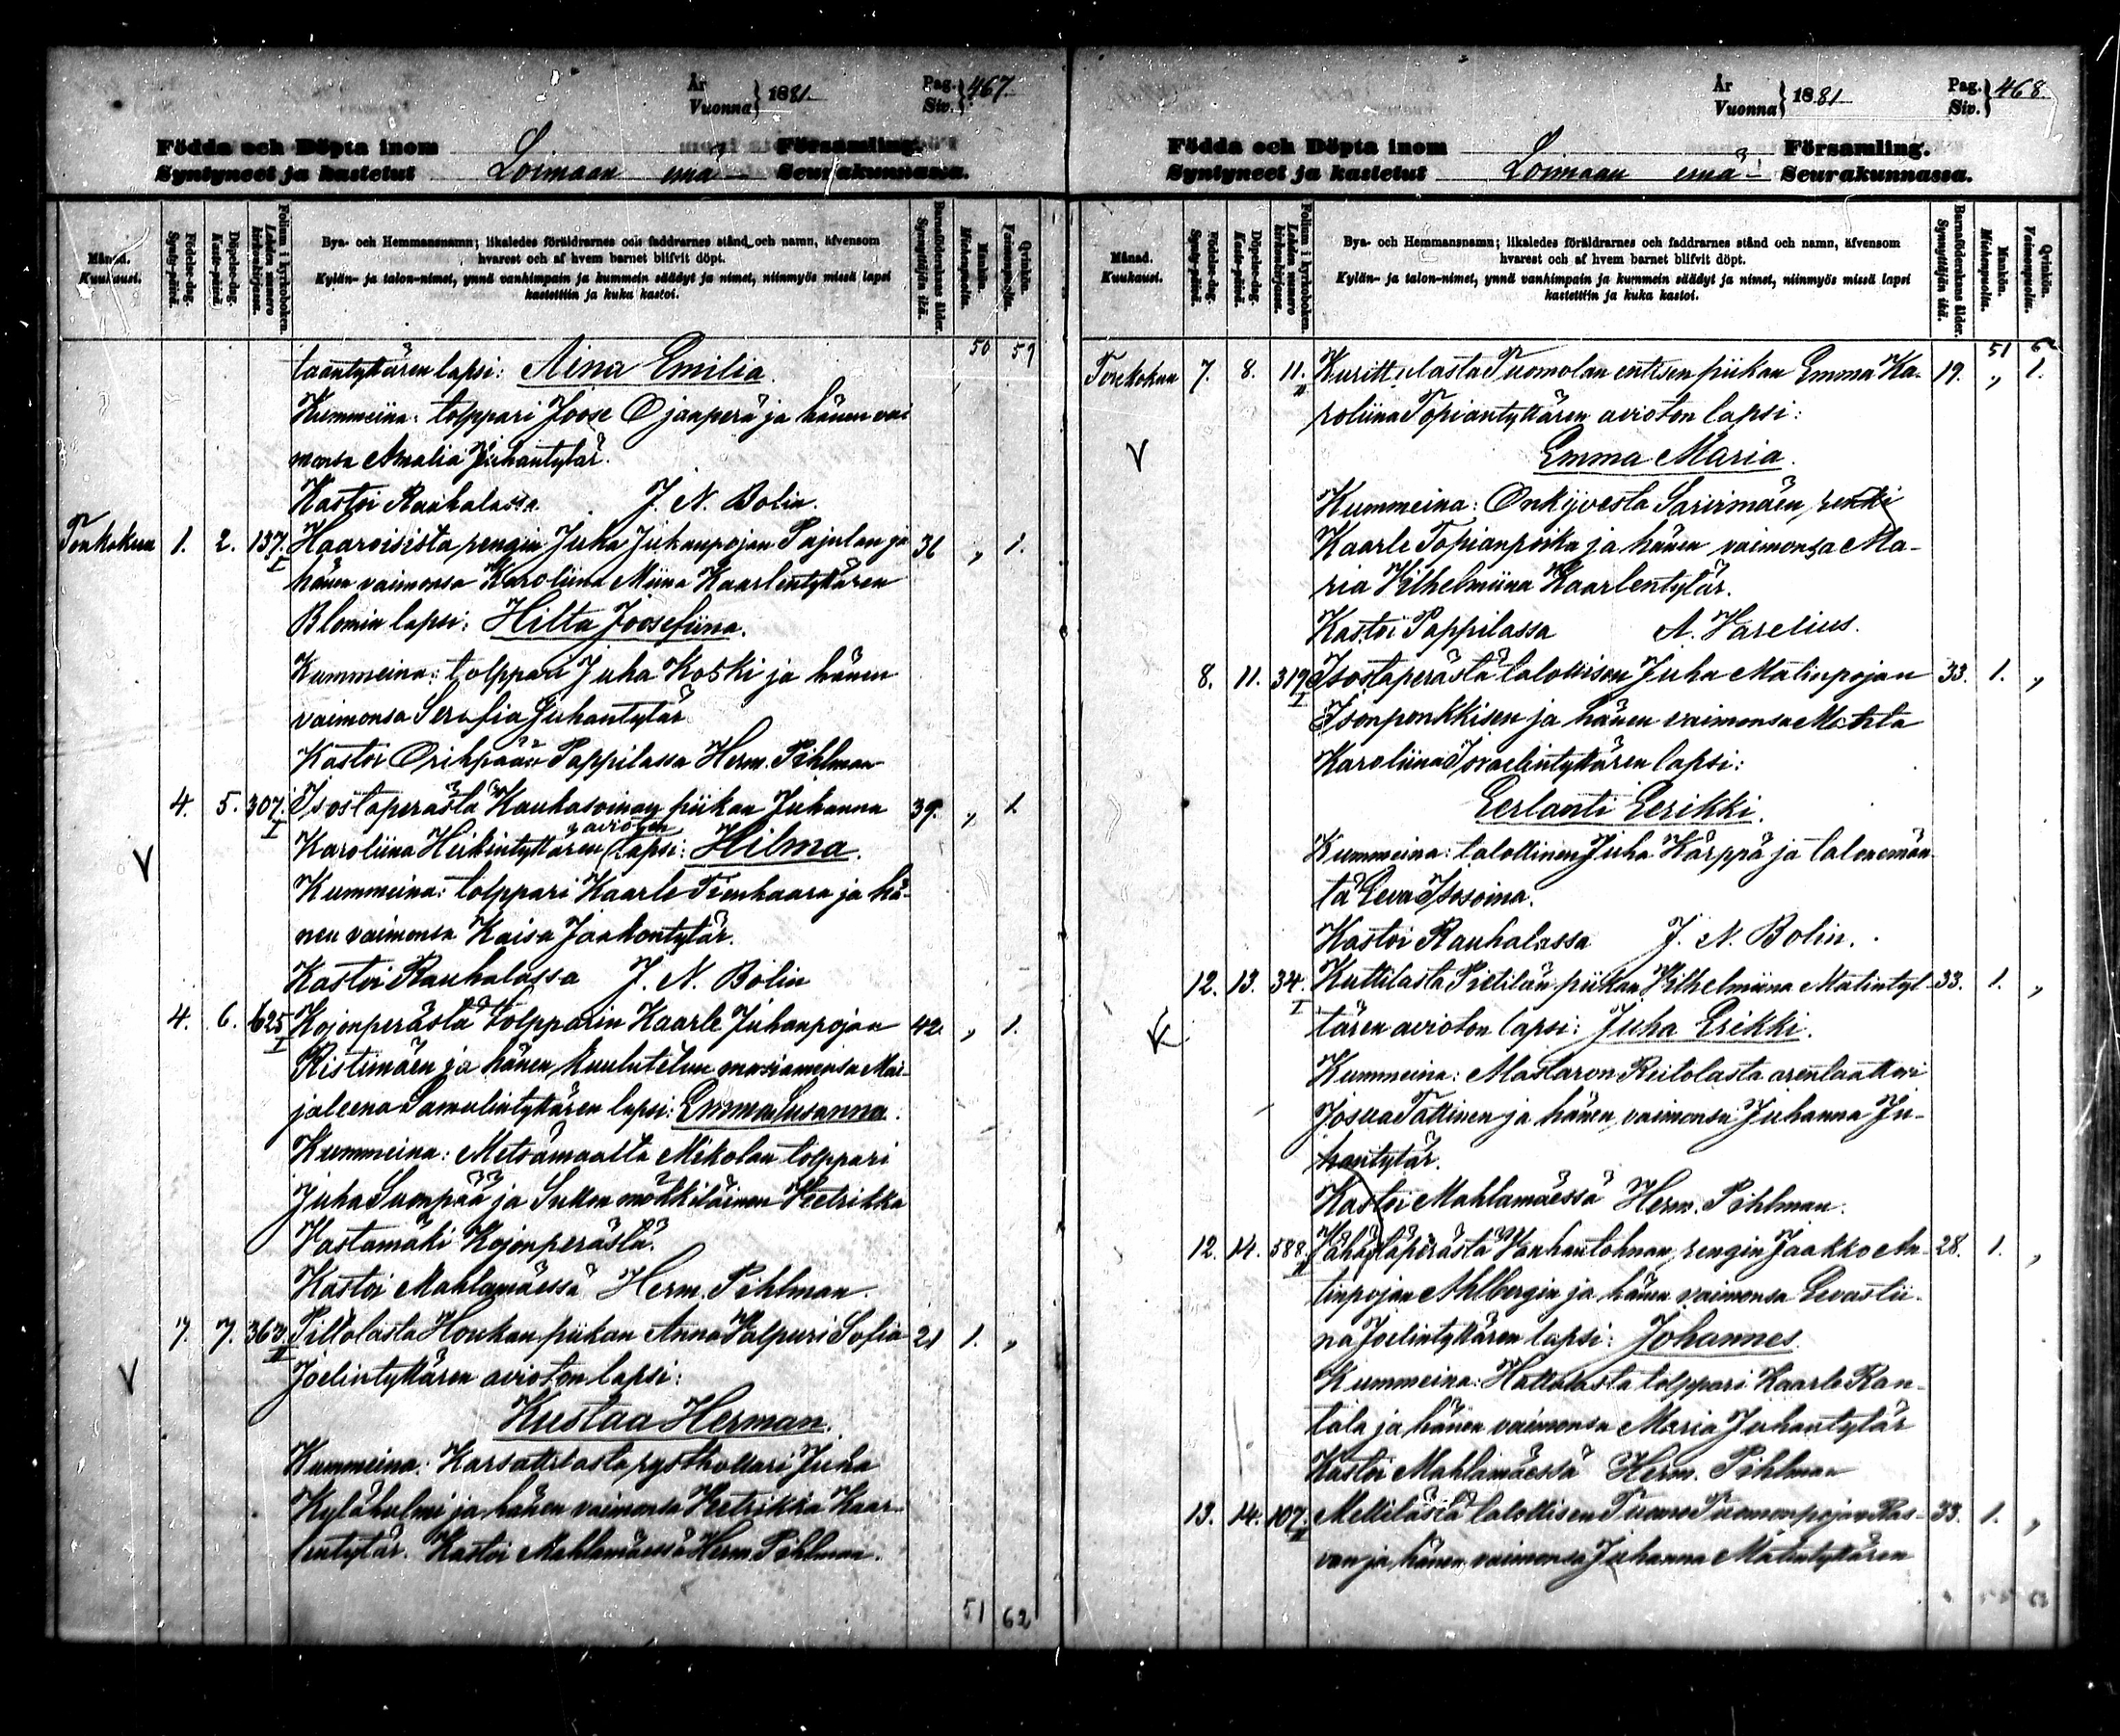 År
Vuonna } 1881.
Pag.
Siv. } 467.
Födda och Döpta inom Församling.
Syntyneet ja kastetut Loimaan emä Seurakunnassa.
Månad. Kuukausi.
Födelse-dag. Synty-päivä.
Döpelse-dag. Kaste-päivä.
Folium i kyrkoboken. Lehden numero kirkonkirjassa.
Bya- och Hemmansnamn; likaledes föräldrarnes och faddrarnes stånd och namn, äfvensom
hvarest och af hvem barnet blifvit döpt.
Kylän- ja talon-nimet, ynnä vanhimpain ja kummein säädyt ja nimet, niinmyös missä lapsi
kastettiin ja kuka kastoi.
Barnaföderskans ålder. Synnyttäjän ikä.
Mankön. Miehenpuolta.
Qvinkön. Vaimonpuolta.
50 59
taantyttären lapsi: Aina Emilia.
Kummeina: tolppari Joose Ojanperä ja hänen vai
monsa Amalia Juhantytär.
Kastoi Rauhalassa J. N. Bolin.
Toukokuu 1. 2. 137. I Haaroisista rengin Juha Juhanpojan Pajulan ja 36 „ 1.
hänen vaimonsa Karoliina Miina Kaarlentyttären
Blomin lapsi: Hilta Joosefiina.
Kummeina: tolppari Juha Koski ja hänen
vaimonsa Serafia Juhantytär
Kastoi Orihpään Pappilassa Herm. Pihlman
4. 5. 307. I Isostaperästä Kauhasoinay piikan Juhanna 39. „ 1.
Karoliina Heikintyttären avioton lapsi: Hilma.
Kummeina: tolppari Kaarle Teenhaara ja hä-
nen vaimonsa Kaisa Jaakontytär.
Kastoi Rauhalassa J. N. Bolin
4. 6. 625 I Kojonperästä tolpparin Kaarle Juhanpojan 42 „ 1.
Ristimäen ja hänen kuulutetun morsiamensa Mar-
jaleena Samulintyttären lapsi: Emma Susanna.
Kummeina: Metsämaalta Mikolan tolppari
Juha Sumpää ja Sullon mökkiläinen Heetrikka
Vastamäki Kojonperästä.
Kastoi Mahlamäessä Herm. Pihlman
7. 7. 363. II Piltolasta Houkan piikan Anna Valpuri Sofia 21 1. „
Joelintyttären avioton lapsi:
Kustaa Herman.
Kummeina: Karsattilasta rysthollari Juha
Kylähulmi ja hänen vaimonsa Heetrikka Kaar-
lentytär. Kastoi Mahlamäessä Herm. Pihlman.
51 62
År
Vuonna } 1881
Pag.
Siv. } 468.
Födda och Döpta inom Församling.
Syntyneet ja kastetut Loimaan emä Seurakunnassa.
Månad. Kuukausi.
Födelse-dag. Synty-päivä.
Döpelse-dag. Kaste-päivä.
Folium i kyrkoboken. Lehden numero kirkonkirjassa.
Bya- och Hemmansnamn; likaledes föräldrarnes och faddrarnes stånd och namn, äfvensom
hvarest och af hvem barnet blifvit döpt.
Kylän- ja talon-nimet, ynnä vanhimpain ja kummein säädyt ja nimet, niinmyös missä lapsi
kastettiin ja kuka kastoi.
Barnaföderskans ålder. Synnyttäjän ikä.
Mankön. Miehenpuolta.
Qvinkön. Vaimonpuolta.
51 62
Toukokuu 7. 8. 11. II Kurittulasta Tuomolan entisen piikan Emma Ka- 19. „ 1.
roliina Topiantyttären avioton lapsi:
Emma Maria.
Kummeina: Onkijvesta Sarirmäen renki
Kaarle Topianpoika ja hänen vaimonsa Ma-
ria Vilhelmiina Kaarlentytär.
Kastoi Pappilassa A. Varelius.
8. 11. 319 I Isostaperästä talollisen Juha Matinpojan 33. 1. „
Isonponkkisen ja hänen vaimonsa Matilta
Karoliina Israelintyttären lapsi:
Eerlanti Eerikki.
Kummeina: talollinen Juha Kärppä ja talonemän
tä Eeva Isosoina.
Kastoi Rauhalassa J. N. Bolin.
12. 13. 34. I Kuttilasta Pietilän piikan Vilhelmiina Matintyt- 33. 1. „
tären avioton lapsi: Juha Erikki.
Kummeina: Mastaron Reitolasta arentaattori
Josua Tattinen ja hänen vaimonsa Juhanna Ju-
hantytär.
Kastoi Mahlamäessä Herm. Pihlman.
12. 14. 588. II Vähästäperästä Vanhantohnan rengin Jaakko An- 28. 1. „
tinpojan Ahlbergin ja hänen vaimonsa Eevastii-
na Joelintyttären lapsi: Johannes.
Kummeina: Hattulasta tolppari Kaarle Ran-
tala ja hänen vaimonsa Maria Juhantytär
Kastoi Mahlamäessä Herm. Pihlman
13. 14. 107. II Mellilästä talollisen Tuomo Tuomonpojan Ras- 33. 1. „
van ja hänen vaimonsa Juhanna Matintyttären